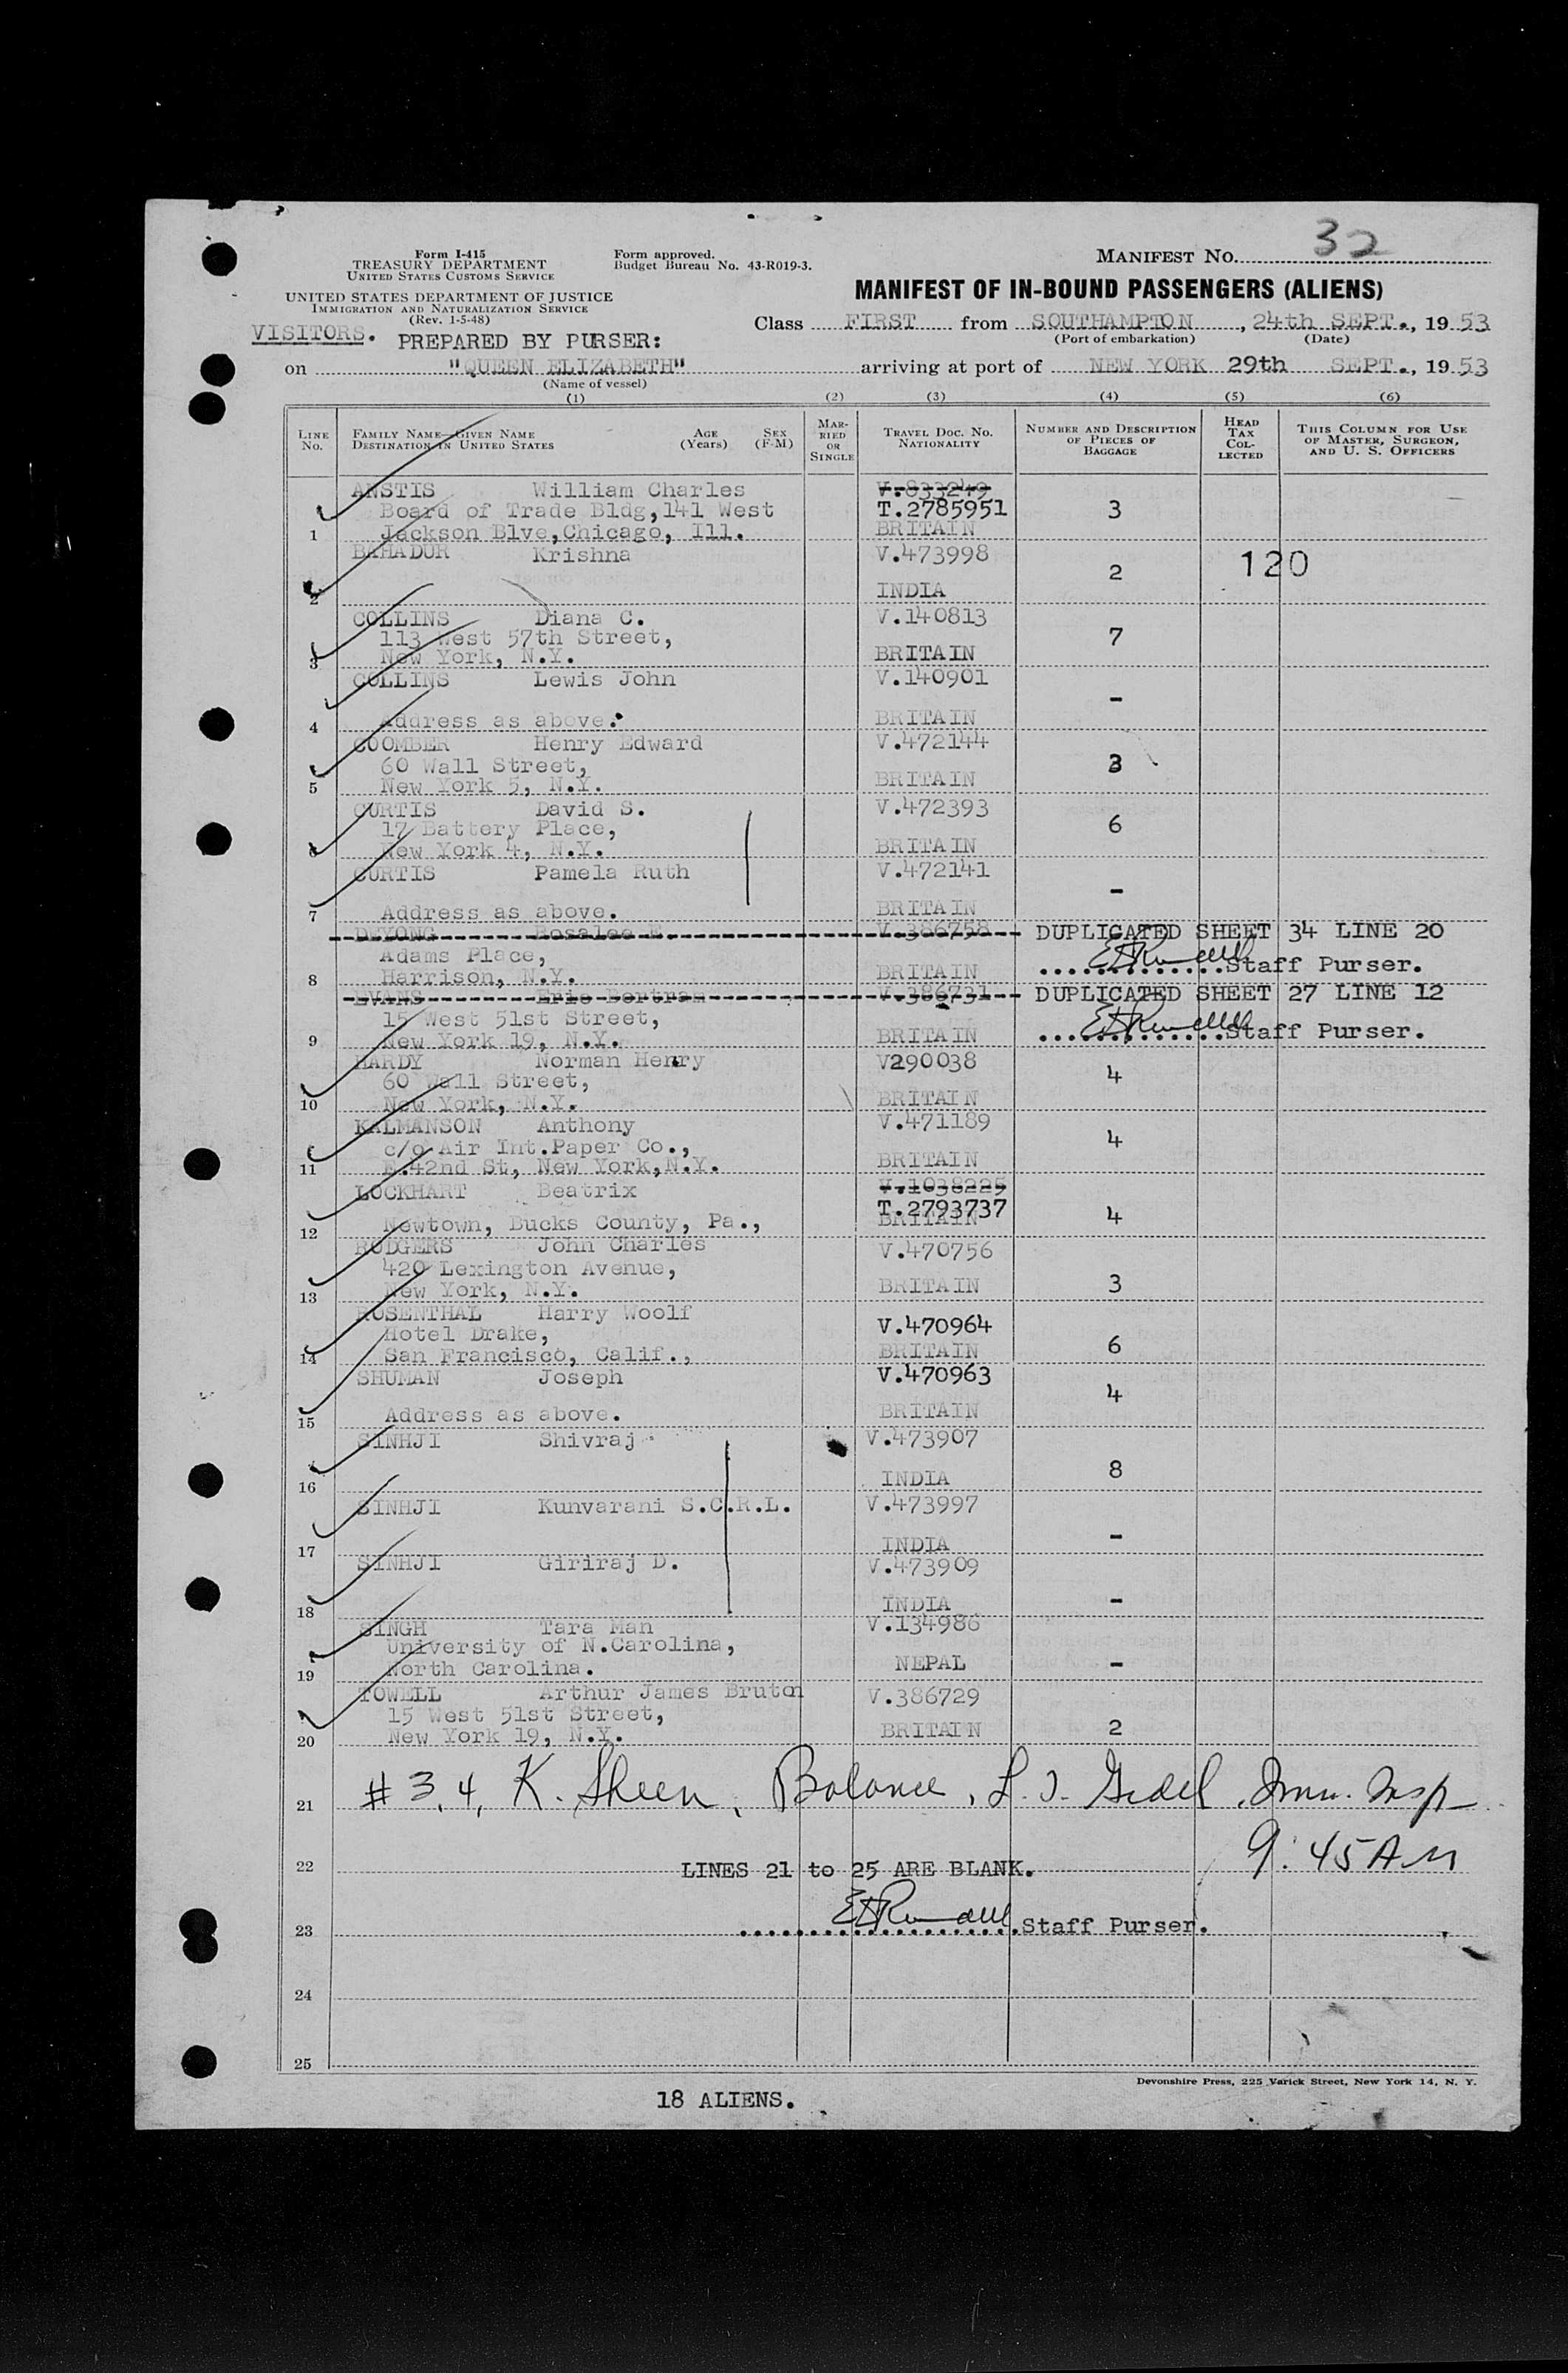 MANIFEST NO. 32
Form I-415
TREASURY DEPARTMENT
UNITED STATES CUSTOMS SERVICE
Form approved.
Budget Bureau No. 43-R019-3.
UNITED STATES DEPARTMENT OF JUSTICE
IMMIGRATION AND NATURALIZATION SERVICE
(Rev. 1-5-48)
MANIFEST OF IN-BOUND PASSENGERS (ALIENS)
VISITORS. PREPARED BY PURSER:
Class FIRST from SOUTHAMPTON, 24th SEPT., 19 53
(Port of embarkation) (Date)
on "QUEEN ELIZABETH" arriving at port of NEW YORK 29th SEPT., 19 53
(Name of vessel)
(1) (2) (3) (4) (5) (6)
LINE No. FAMILY NAME—GIVEN NAME DESTINATION IN UNITED STATES AGE (Years) SEX (F-M) MARRIED OR SINGLE TRAVEL DOC. NO. NATIONALITY NUMBER AND DESCRIPTION OF PIECES OF BAGGAGE HEAD TAX COLLECTED THIS COLUMN FOR USE OF MASTER, SURGEON, AND U. S. OFFICERS
ANSTIS William Charles V.833249
Board of Trade Bldg,141 West T.2785951 3
1 Jackson Blve,Chicago, Ill. BRITAIN
BAHADUR Krishna V.473998
2 INDIA 2 120
COLLINS Diana C. V.140813
113 West 57th Street, 7
3 New York, N.Y. BRITAIN
COLLINS Lewis John V.140901
-
4 Address as above. BRITAIN
COOMBER Henry Edward V.472144
60 Wall Street, 3
5 New York 5, N.Y. BRITAIN
CURTIS David S. V.472393
17 Battery Place, 6
6 New York 4, N.Y. BRITAIN
CURTIS Pamela Ruth V.472141
-
7 Address as above. BRITAIN
DEYONG Rosalee E. V.386758 DUPLICATED SHEET 34 LINE 20
Adams Place,
8 Harrison, N.Y. BRITAIN .............Staff Purser.
EVANS Eric Bertram V.386731 DUPLICATED SHEET 27 LINE 12
15 West 51st Street,
9 New York 19, N.Y. BRITAIN .............Staff Purser.
HARDY Norman Henry V290038
60 Wall Street, 4
10 New York, N.Y. BRITAIN
KALMANSON Anthony V.471189
c/o Air Int.Paper Co., 4
11 E.42nd St, New York,N.Y. BRITAIN
LOCKHART Beatrix V.1038225
T.2793737 4
12 Newtown, Bucks County, Pa., BRITAIN
RODGERS John Charles V.470756
420 Lexington Avenue,
13 New York, N.Y. BRITAIN 3
ROSENTHAL Harry Woolf V.470964
Hotel Drake,
14 San Francisco, Calif., BRITAIN 6
SHUMAN Joseph V.470963
4
15 Address as above. BRITAIN
SINHJI Shivraj V.473907
16 INDIA 8
SINHJI Kunvarani S.C.R.L. V.473997
17 INDIA -
SINHJI Giriraj D. V.473909
18 INDIA -
SINGH Tara Man V.134986
University of N.Carolina,
19 North Carolina. NEPAL -
TOWELL Arthur James Bruton V.386729
15 West 51st Street,
20 New York 19, N.Y. BRITAIN 2
21 # 3, 4, K. Sheen, Balance, Imm. Insp
9:45 AM
22 LINES 21 to 25 ARE BLANK.
23 ....................Staff Purser.
24
25
Devonshire Press, 225 Varick Street, New York 14, N. Y.
18 ALIENS.